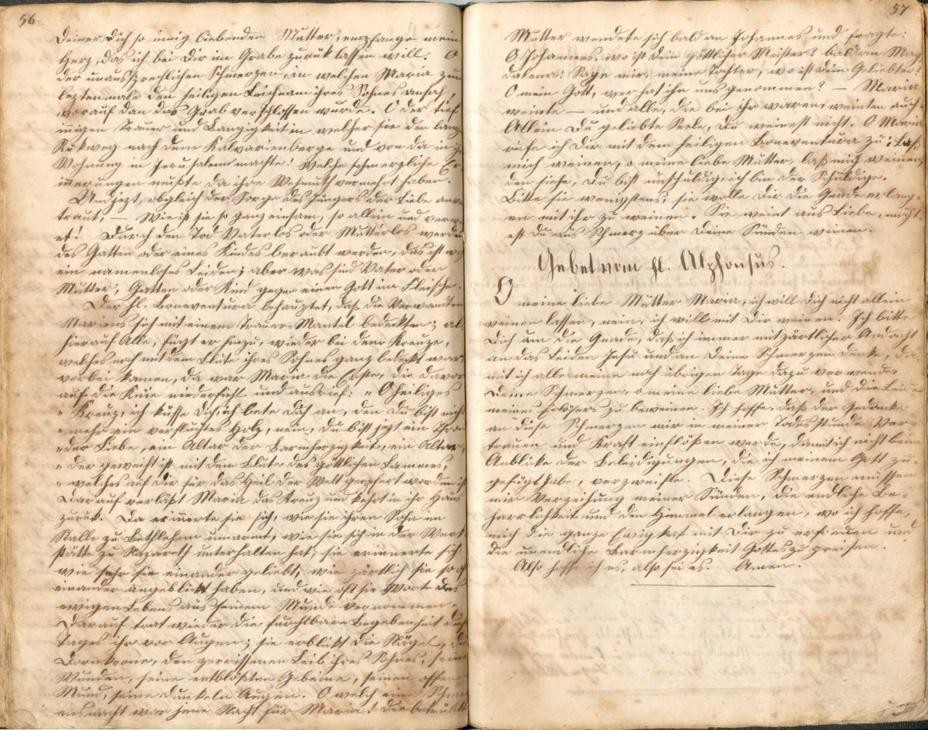 56
Deiner Dich so innig liebenden Mutter, empfange mein
Herz, das ich bei Dir im Grabe zurük lassen will. O
der unaussprechlichen Schmerzen, in welchen Maria zum
leztenmale den heiligen Leichnam ihres Sohnes ansah,
worauf dan das Grab verschlossen wurde. O der tief
innigen Trauer und Bangigkeit in welcher sie den lang
Rükweg nach dem Kalvarienberge und von da in ihre
Wohnung in Jerusalem machte! Welche schmerzliche Er
innerungen mußte da ihre Wehmuth vermehrt haben.
Und jezt, obgleich der Sorge des Jüngers der Liebe anver
traut, — Wie ist sie so ganz einsam, so allein und verwai
set! Durch den Tod Vaterlos oder Mutterlos werden
des Gatten oder eines Kindes beraubt werden, das ist w
ein namenloses Leiden; aber was sind Vater oder
Mutter, Gatten oder Kind gegen einen Gott im Fleische.
Der hl. Bonaventura behauptet, daß die Verwandten
Mariens sich mit einem Trauer-Mantel bedekten; als
hierauf Alle, fügt er hinzu, wieder bei dem Kreuze,
welches noch mit dem Blute ihres Sohnes ganz bedekt war
vorbei kamen, da war Maria die Erste, die davor
auf die Knie niederfiel und ausrief: „O heiliges
„Kreuz, ich küsse dich, ich bete dich an, den du bist nicht
„mehr ein verfluchtes Holz, nein, du bist jezt ein Thron
„der Liebe, ein Altar der Barmherzigkeit, ein Altar,
„der geweiht ist mit dem Blute des göttlichen Lammes,
„welches auf dir für das Heil der Welt geopfert worden ist
Darauf verläßt Maria das Kreuz und kehrt in ihr Haus
zurük. Da erinnerte sie sich, wie sie ihren Sohn im
Stalle zu Bethlehem umarmt, wie sie sich in der Werk
stätte zu Nazareth unterhalten hat; sie erinnerte sich
wie sehr sie einander geliebt, wie zärtlich sie so oft
einander angeblikt haben, und wie oft sie Worte des
ewigen Lebens aus seinem Munde vernommen.
Darauf trat wieder die furchtbare Begebenheit des
Tages ihr vor Augen; sie erblikt die Nägel, die
Dornkrone, den zerrissenen Leib ihres Sohnes, seine
Wunden, seine entblößten Gebeine, seinen offenen
Mund, seine dunkeln Augen. O welch eine Schm
ensnacht war jene Nacht für Maria! Die betrübte
57
Mutter wendete sich bald an Johannes und fragte:
O Johannes, wo ist dein göttlicher Meister? bald an Mag
dalena: Sage mir, meine Tochter, wo ist dein Geliebter?
O mein Gott, wer hat ihn uns genommen? — Maria
weinte — und alle, die bei ihr waren, weinten auch.
Allein du geliebte Seele, du weinest nicht. O Maria
rufe ich Dir mit dem heiligen Bonaventura zu: laß
mich weinen, o meine liebe Mutter, laß mich weinen,
den siehe, Du bist unschuldig, ich bin der Schuldige.
Bitte sie wenigstens, sie wolle Dir die Gnade erlang-
en mit ihr zu weinen. Sie weint aus Liebe, möch
est du aus Schmerz über deine Sünden weinen.
Gebet vom hl. Alphonsus.
O meine liebe Mutter Maria, ich will dich nicht allein
weinen lassen, nein, ich will mit Dir weinen. Ich bitte
Dich um die Gnade, daß ich immer mit zärtlicher Andacht
an das Leiden Jesu und an Deine Schmerzen denke, da
mit ich alle meine noch übrigen Tage dazu verwende
Deine Schmerzen, o meine liebe Mutter, und die Leiden
meines Erlösers zu beweinen. Ich hoffe, daß der Gedanke
an diese Schmerzen mir in meiner Todesstunde Ver-
trauen und Kraft einflößen werde, damit ich nicht beim
Anblike der Beleidigungen, die ich meinem Gott zu-
gefügt habe, verzweifle. Diese Schmerzen müssen
mir Verzeihung meiner Sünden, die endliche Be-
harrlichkeit und den Himmel erlangen, wo ich hoffe,
mich die ganze Ewigkeit mit Dir zu erfreuen und
die unendliche Barmherzigkeit Gottes zu preisen.
Also hoffe ich es, also sei es. Amen.